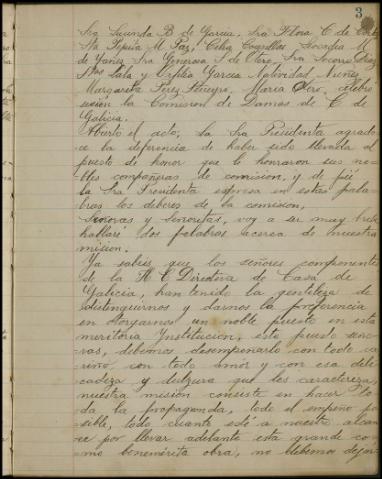 3
Sra Secunda B de Garcia, Sra Flora C de
Sta Pepita M Paz, Celia Cogrillas Leocadia M
de Yañez Sra Generosa S de Otero, Sra Socorro
Stas Lala y Ofelia Garcia Natividad Nuñez
Margarita Perez, Maria Otero, celebró
sesión la Comision de Damas de C de
Galicia.
Abierto el acto, la Sra Presidenta agrade
ce la deferencia de haber sido llevada al
puesto de honor que le honraron sus no
bles compañeras de comision, y de pié
la Sra Presidenta expresa en estas pala-
bras los deberes de la comision,
Señoras y Señoritas, voy a ser muy breve
hallaré dos palabras acerca de nuestra
mision.
Ya sabeis que los señores componentes
de la H C Directiva de Casa de
Galicia, han tenido la gentileza de
distinguirnos y darnos la preferencia
en otorgarnos un noble puesto en esta
meritoria Institucion, este puesto seño-
ras, debemos desempeñarlo con todo ca
riño con todo amor y con esa deli
cadeza y dulzura que los caracteriza,
nuestra mision consiste en hacer to
da la propaganda, todo el empeño po
sible, todo cuanto esté a nuestro alcan
ce por llevar adelante esta grande co-
mo benemérita obra, no debemos dejar